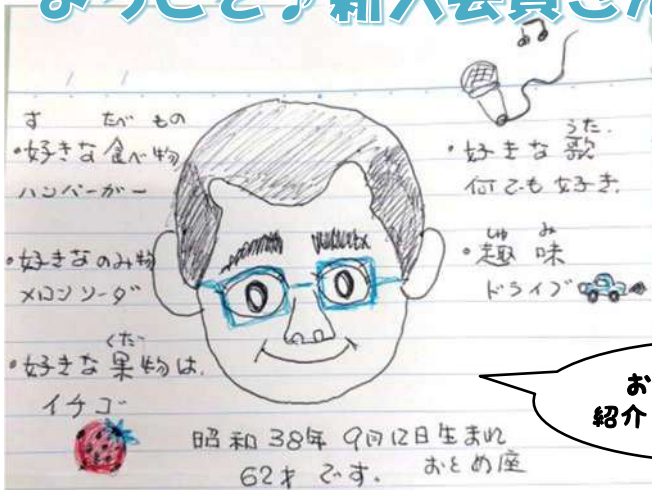 ようこそ♪新入会員さん
す たべ もの
・好きな食べ物
ハンバーガー
・好きなのみ物
メロンソーダ
くだ
・好きな果物は、
イチゴ
うた
・好きな歌
何でも好き。
しゅ み
・趣味
ドライブ
昭和38年 9月12日生まれ
62才です。 おとめ座
お
紹介